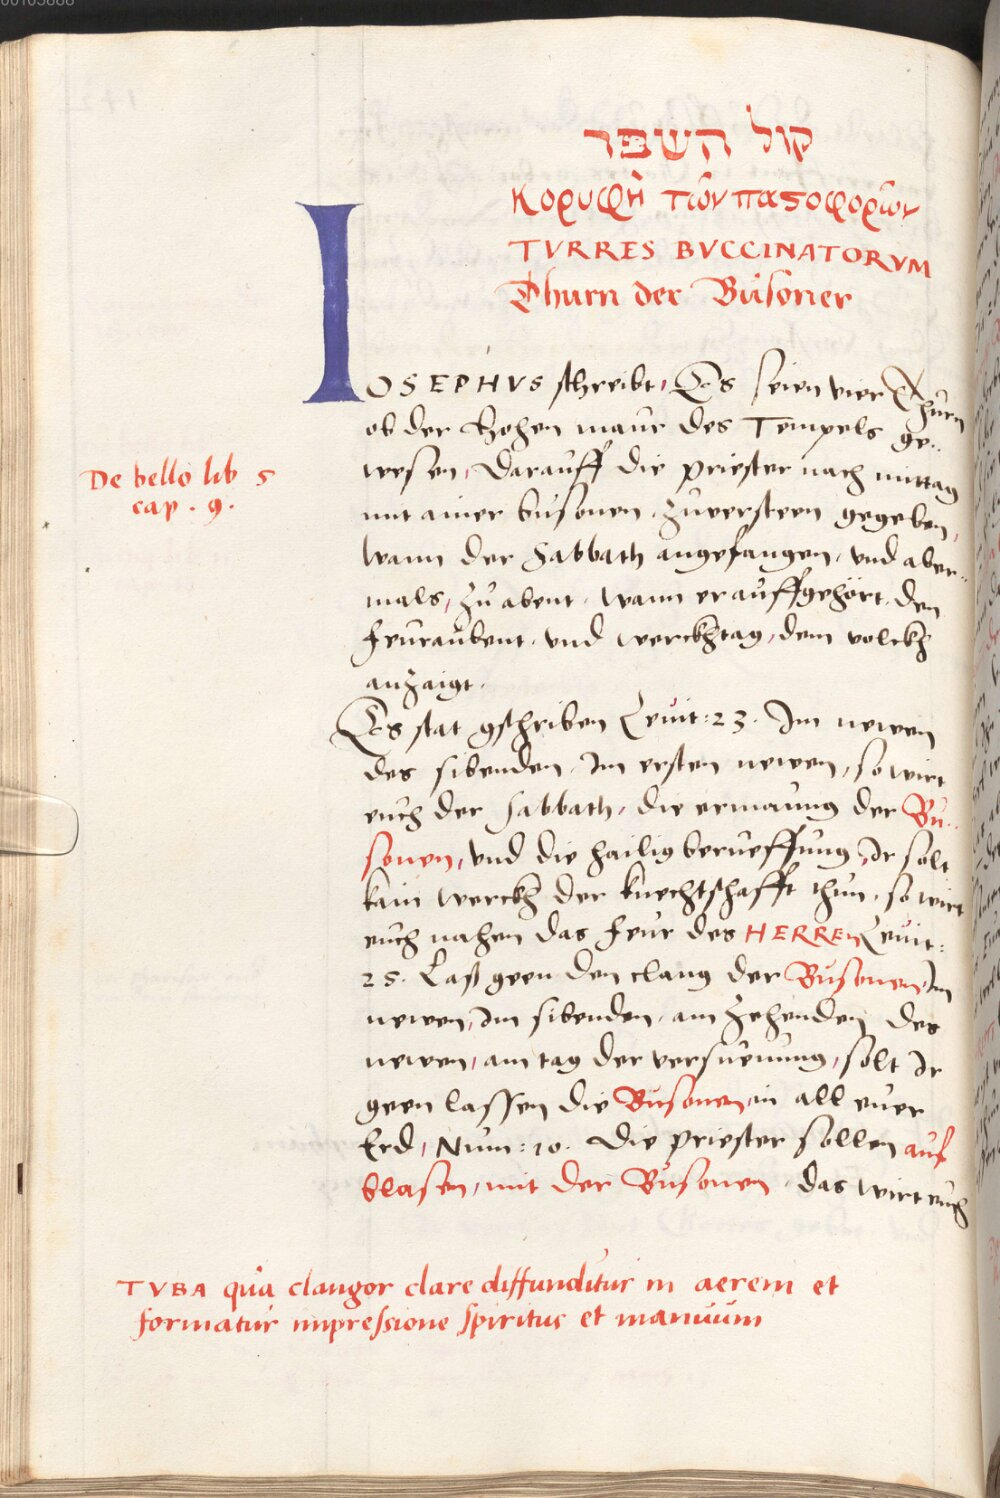 קול השפר
κορυφὴ τῶν παστοφορίων
TVRRES BVCCINATORVM
Thurn der Busoner
IOSEPHVS schreibt, Es seien vier Thurn
ob der hohen maur des Tempels ge-
wesen, darauff die priester nach mittag
mit ainer busonen zuversteen gegeben,
wann der Sabbath angefangen, und aber-
mals, zu abent, wann er auffgehört, den
feuraubent, und werckhtag, dem volckh
anzaigt.
De bello lib 5
cap. 9.
Es stat gschriben Levit: 23. Im newen
des sibenden, Im ersten newen, so wirt
euch der sabbath, die ermanung der Bu-
sonen, und die hailig berueffung, Ir solt
kain werckh der knechtschafft thun, so wirt
euch nahen das feur des HERREN Levit:
25. Lasß geen den clang der Busonen, Im
newen, Im sibenden, am zehenden des
newen, am tag der versuenung, solt Ir
geen lassen die Busonen, in all euer
Erd, Num: 10. die priester sollen auf
blasen, mit der Busonen, das wirt euch
TVBA qua clangor clare diffunditur in aerem et
formatur impressione spiritus et manuum